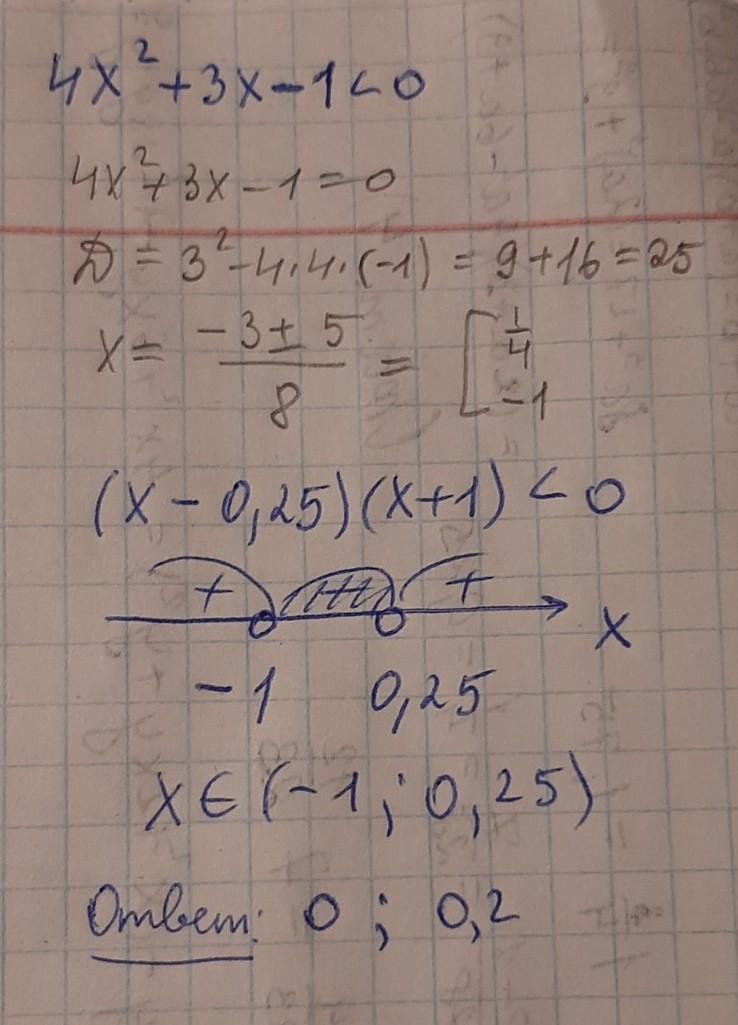 4x² + 3x - 1 < 0
4x² + 3x - 1 = 0
D = 3² - 4 · 4 · (-1) = 9 + 16 = 25
x = (-3 ± 5)/8 = [ 1/4
-1
(x - 0,25)(x + 1) < 0
+ +
x
-1 0,25
x ∈ (-1; 0,25)
Ответ: 0 ; 0,2